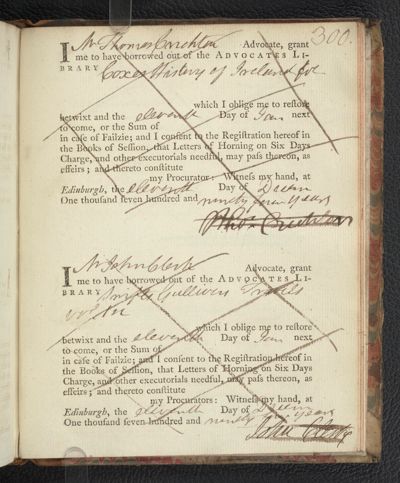 300.
I Mr Thomas Crichton Advocate, grant
me to have borrowed out of the ADVOCATES LI-
BRARY Coxes History of Ireland fol
which I oblige me to restore
betwixt and the eleventh Day of Jan next
to come, or the Sum of
in case of Failzie; and I consent to the Registration hereof in
the Books of Session, that Letters of Horning on Six Days
Charge, and other executorials needful, may pass thereon, as
effeirs; and thereto constitute
my Procurators: Witness my hand, at
Edinburgh, the eleventh Day of Decem
One thousand seven hundred and ninety four years
Thos Crichton
I Mr John Clerk Advocate, grant
me to have borrowed out of the ADVOCATES LI-
BRARY Swifts Gullivers Travels
which I oblige me to restore
betwixt and the eleventh Day of Jan next
to come, or the Sum of
in case of Failzie; and I consent to the Registration hereof in
the Books of Session, that Letters of Horning on Six Days
Charge, and other executorials needful, may pass thereon, as
effeirs; and thereto constitute
my Procurators: Witness my hand, at
Edinburgh, the eleventh Day of Decem
One thousand seven hundred and ninety four years
John Clerk